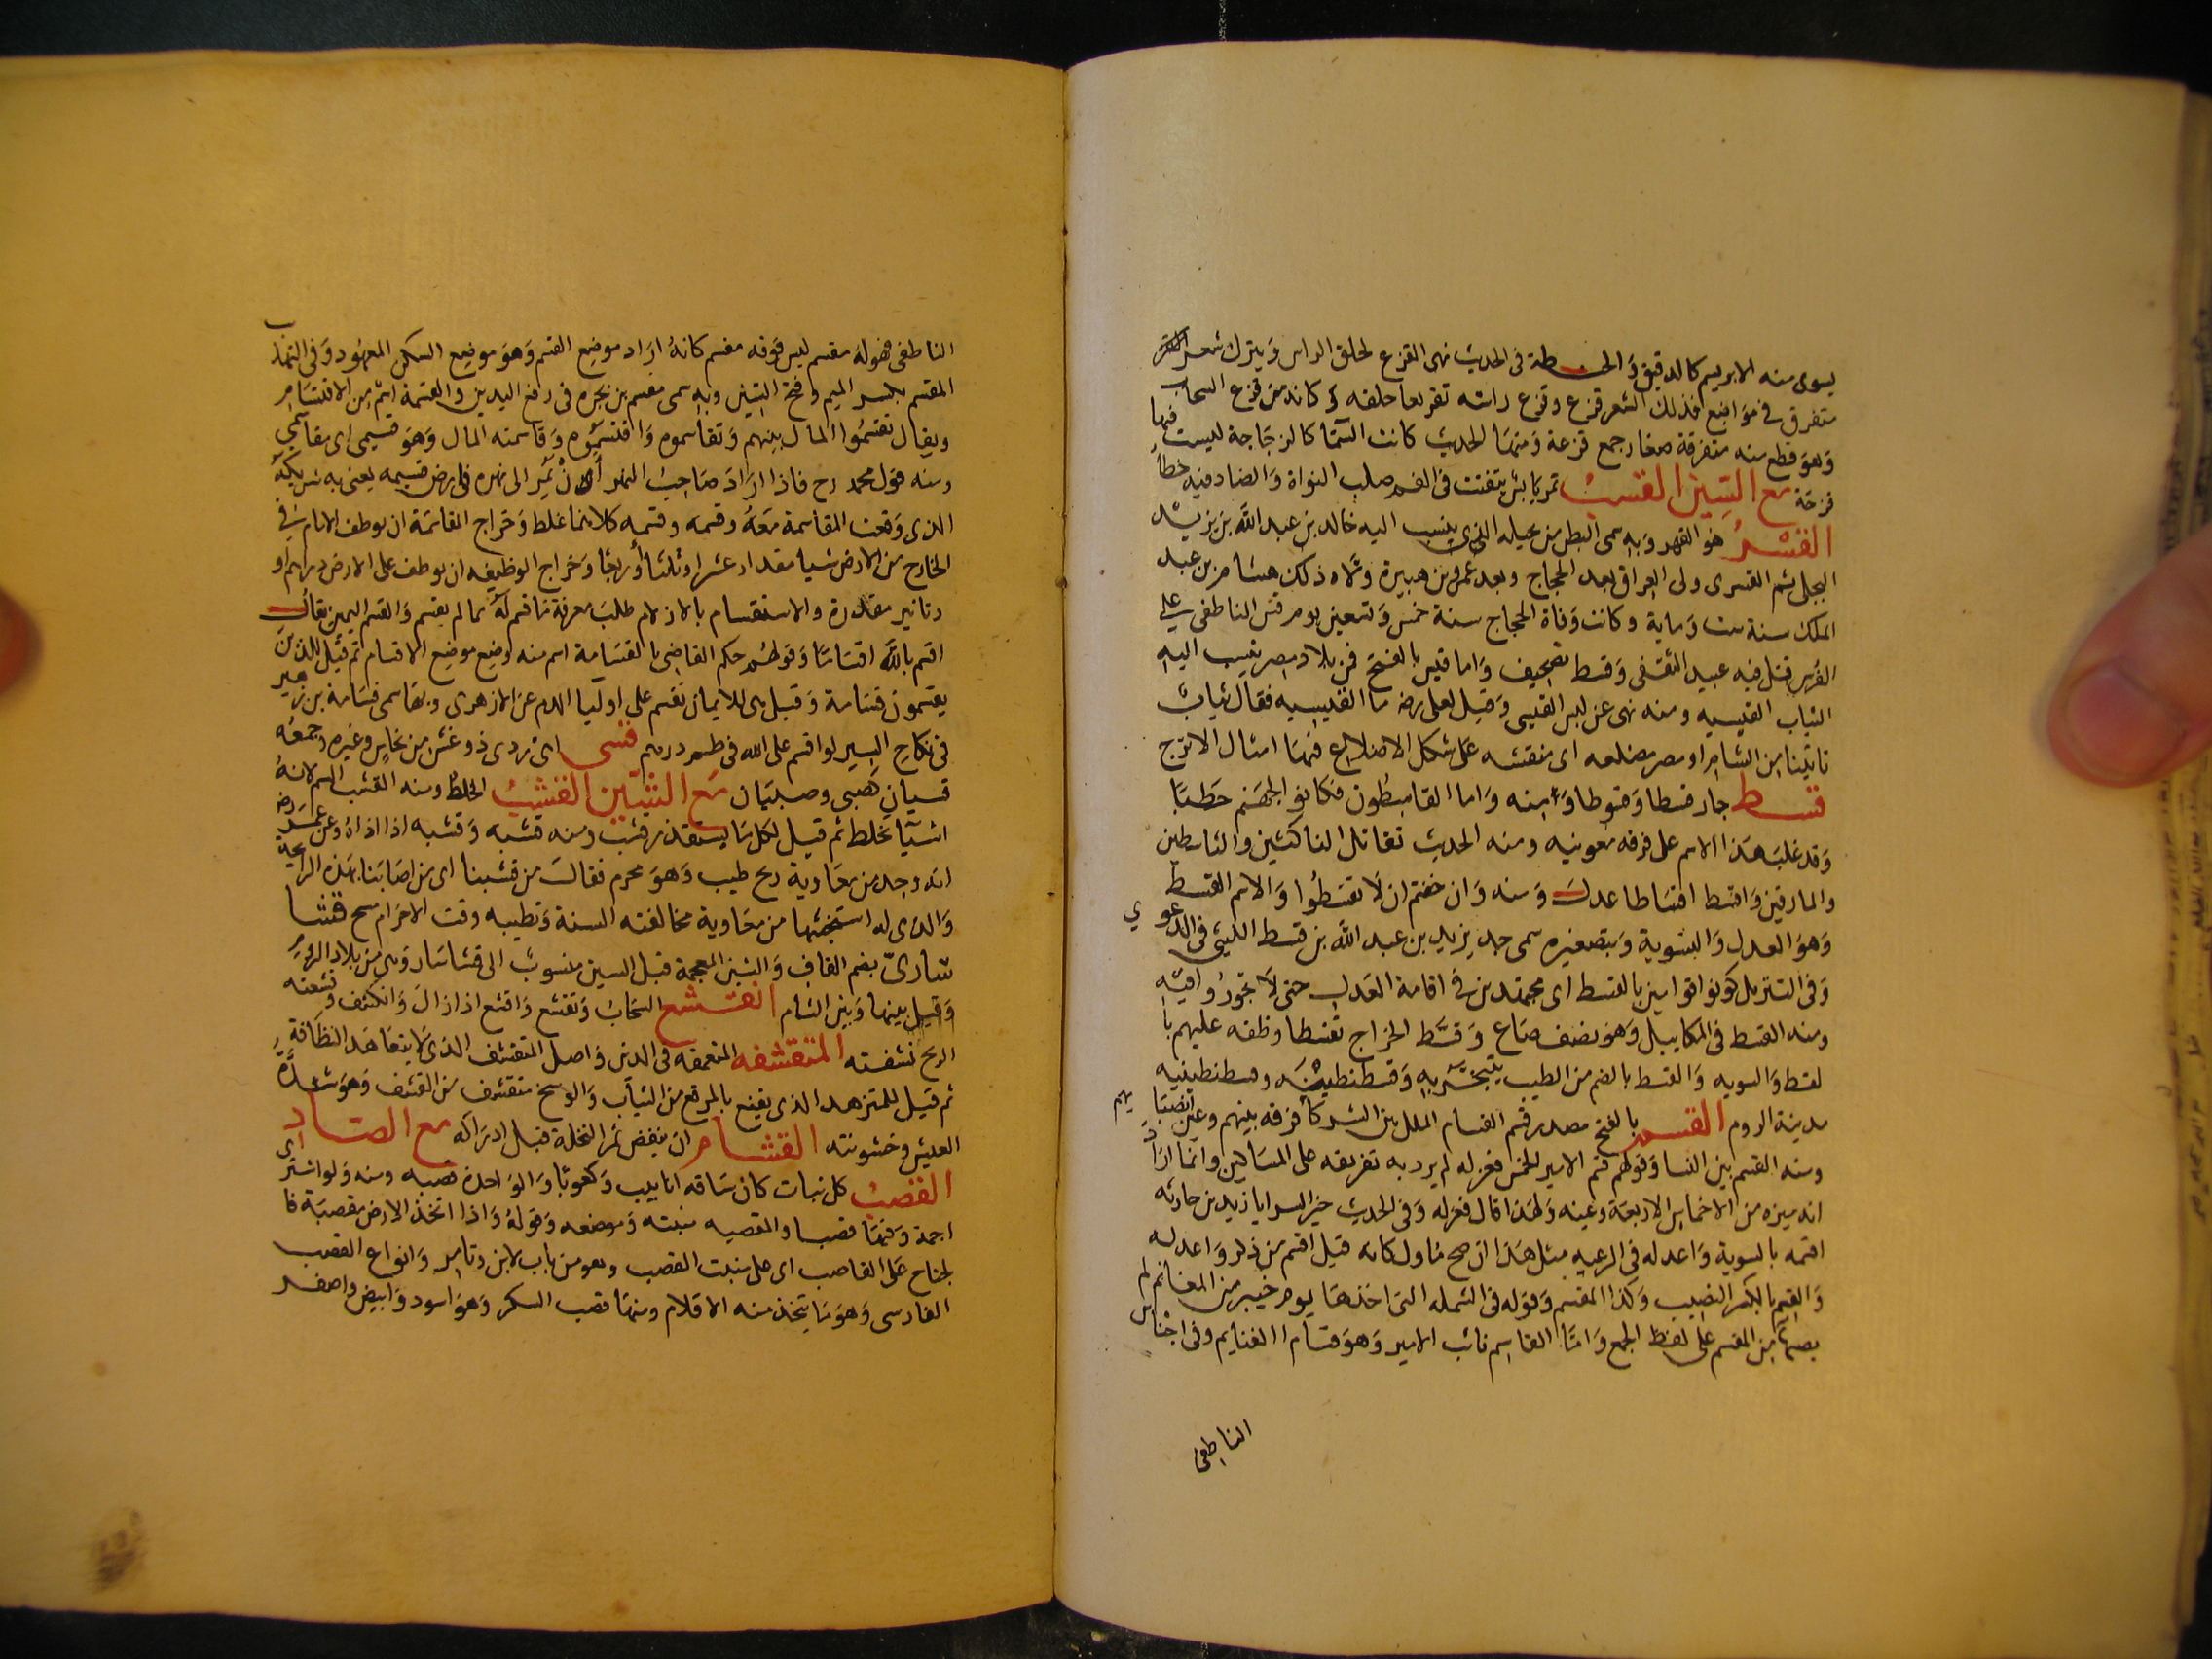 يسوى منه الابريسم كالدقيق والحنطة في الحديث نهى القزع لحلق الراس ويترك شعر
متفرق في مواضع فذلك الشعر قزع وقزع راسه تقريعا حلقه كانه من قزع السحاب
وهو قطع منه متفرقة صغار جمع قزعة ومنها الحديث كانت السما كالزجاجة ليست فيها
قزعة مع السين القسب تمر يابس يتفتت في الفم صلب النواة والصاد فيه خطأ
القسر هو القهر وبه سمى البطن من بجيله الذى ينسب اليه خالد بن عبد الله بن يزيد
البجلى ثم القسرى ولى العراق بعد الحجاج وبعد عمر بن هبيرة ولاه ذلك هشام بن عبد
الملك سنة ست وماية وكانت وفاة الحجاج سنة خمس وتسعين يوم قس الناطفى على
الفرس قتل فيه عبيد الثقفى وقسط تصحيف واما قس بالفتح فمن بلاد مصر ينسب اليه
الثياب القسيه ومنه نهى عن لبس القسى وقيل لعلى رضه ما القسيه فقال ثياب
تاتينا من الشام او مصر مضلعه اى منقشه على شكل الاضلاع فيها امثال الاترج
قسط جار قسطا وقسوطا ومنه واما القاسطون فكانو الجهنم حطبا
وقد غلب هذا الاسم على فرقه معوية ومنه الحديث تقاتل الناكثين والقاسطين
والمارقين واقسط اقساطا عدل ومنه وان خفتم ان لا تقسطوا والاسم القسط
وهو العدل والتسوية وبتصغيره سمى جد يزيد بن عبد الله بن قسط الليثى في الدعوى
وفى التنزيل كونوا قوامين بالقسط اى مجتهدين في اقامة العدل حتى لا تجوروا فيه
ومنه القسط في المكاييل وهو نصف صاع وقسط الخراج تقسيطا وظفه عليهم با
لقسط والسويه والقسط بالضم من الطيب يتبخر به وقسطنطينيه
مدينة الروم القسم بالفتح مصدر قسم القسام المال بين الشركا فرقه بينهم وعين انصبا
ومنه القسم بين النسا وقولهم قسم الامير الخمس فعزله لم يرد به تفريقه على المساكين وانما اراد
انه ميزه من الاخماس الاربعة وعينه ولهذا قال فعزله وفى الحديث خير السرايا زيد بن حارثه
اقسمه بالسوية واعدله في الرعيه مثل هذا ان صح فاول كانه قيل اقسم من ذكر واعدله
والقسم بالكسر النصيب وكذا المقسم وقوله في الشمله التى اخذها يوم خيبر من المغانم لم
يصبها من المقسم على لفظ الجمع واما القاسم نائب الامير وهو قسام الغنايم وفى اجناس
الناطفى
الناطفى قوله مقسم ليس فوقه مقسم كانه اراد موضع القسم وهو موضع السكن المعهود وفى التهذيب
المقسم بكسر الميم وفتح السين وبه سمى مقسم بن بجره في رفع اليدين والقسمة اسم من الاقتسام
ويقال تقسموا المال بينهم وتقاسموه واقتسموه وقاسمته المال وهو قسيمى اى مقاسمى
ومنه قول محمد رح فاذا اراد صاحب النهر ان يمر الى نهره في ارض قسيمه يعنى به شريكه
الذى وقعت المقاسمة معه وقسمه وقسمه كلاهما غلط وخراج المقاسمة ان يوظف الامام في
الخارج من الارض شيا مقدار عشرا وثلثا او ربعا وخراج الوظيفه ان يوظف على الارض دراهم او
دنانير مقدرة والاستقسام بالازلام طلب معرفة ما قسم له مما لم يقسم والقسم اليمين يقال
اقسم بالله اقساما وقولهم حكم القاضى بالقسامة اسم منه وضع موضع الاقسام ثم قيل للذين
يقسمون قسامة وقيل هى الايمان تقسم على اوليا الدم عن الازهرى وبها سمى قسامة بن زهير
في نكاح السير لو اقسم على الله في طمر درهم قسى اى ردى ذو غش من نحاس وغيره وجمعه
قسيان كصبى وصبيان مع الشين القشب الخلط ومنه القشب السم لانه
اشيا تخلط ثم قيل لكل ما يستقذر قشب ومنه قشبه وقشبه اذا اذاه وعن عمر رضه
انه وجد من معاوية ريح طيب وهو محرم فقال من قشبنا اى من اصابنا بهذه الرائحة
والذى له استخبثها من معاوية مخالفته السنة وتطيبه وقت الاحرام مسح قشا
سارى بضم القاف والشين المعجمة قبل السين منسوب الى قشاسار وهى من بلاد الروم
وقيل بينها وبين الشام انقشع السحاب وتقشع واقشع اذا زال وانكشف وقشعته
الريح كشفته المتقشفه المتعمقه في الدين واصل المتقشف الذى لا يتعاهد النظافة
ثم قيل للمتزهد الذى يقنع بالمرقع من الثياب والوسخ متقشف من القشف وهو شدة
العيش وخشونته القشام ان ينفض ثمر النخلة قبل ادراكه مع الصاد
القصب كل نبات كان ساقه انابيب وكعوبا والواحدة قصبه ومنه ولو اشترى
اجمة وفيها قصب والمقصبه منبته وموضعه وقوله واذا اتخذ الارض مقصبة فا
لخراج على القاصب اى على منبت القصب وهو من باب لابن وتامر وانواع القصب
الفارسى وهو ما يتخذ منه الاقلام ومنها قصب السكر وهو اسود وابيض واصفر